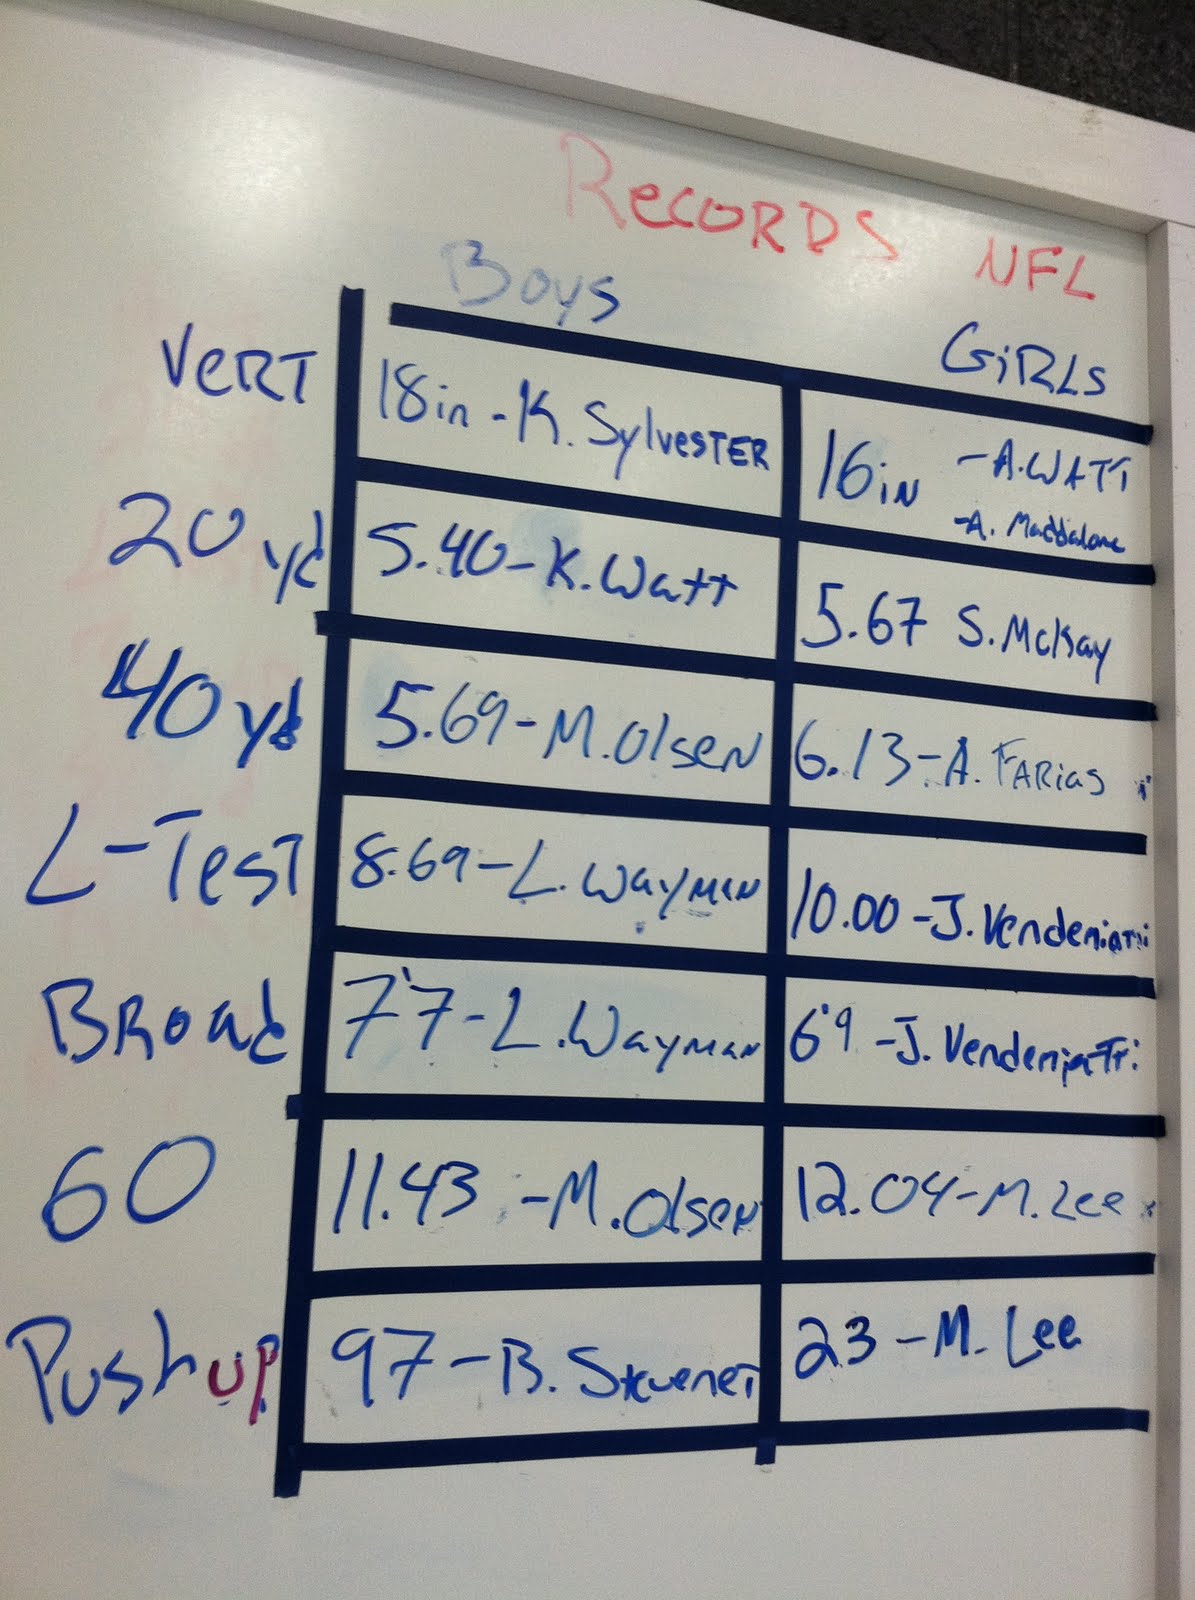 RECORDS NFL
Boys GiRLS
VeRT 18in - K. SylvesTER 16iN - A. WATT
- A. Maddalone
20 yd 5.40 - K. Watt 5.67 S. McKay
40 yd 5.69 - M. Olsen 6.13 - A. FARias
L-Test 8.69 - L. Wayman 10.00 - J. Vendemiatri
BRoad 7'7 - L. Wayman 6'9 - J. VendemiaTri
60 11.43 - M. Olsen 12.04 - M. Lee
Pushup 97 - B. 23 - M. Lee